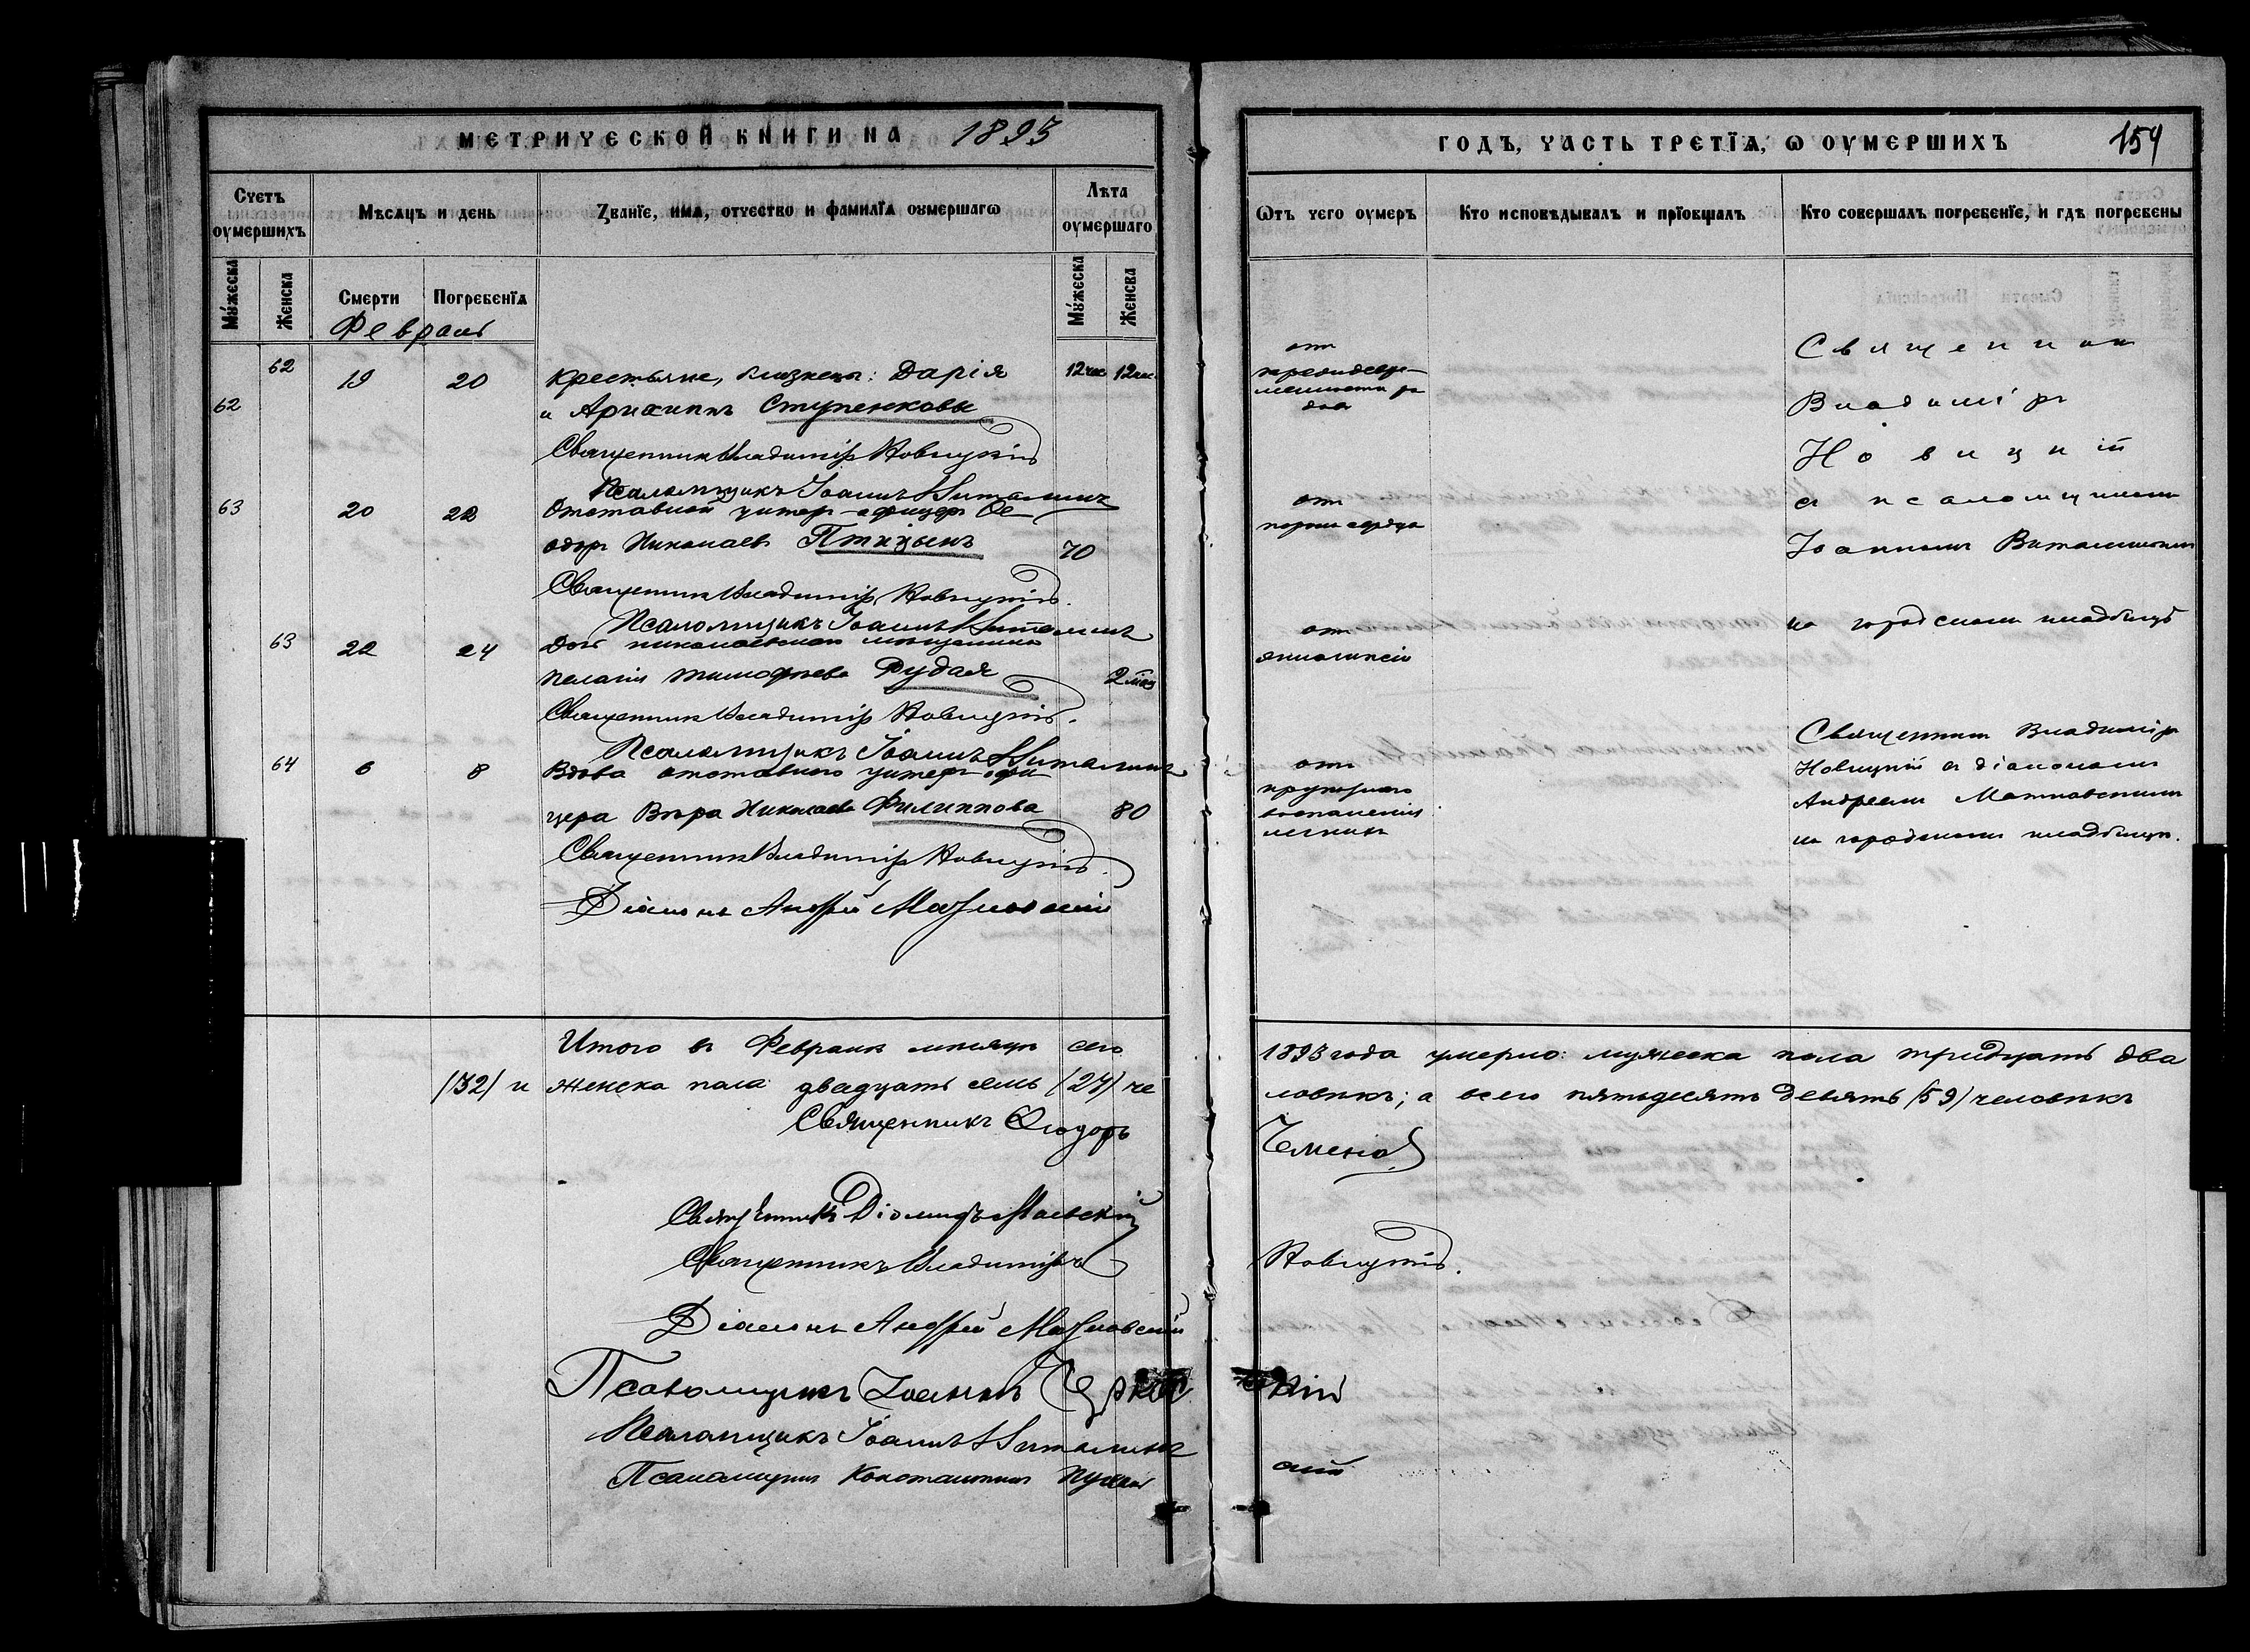 МЕТРИЧЕСКОЙ КНИГИ НА 1893
Счетъ оумершихъ
Мѣсяцъ и день
Званїе, имя, отчество и фамилїя оумершагѡ
Лѣта оумершаго
Мужеска
Женска
Смерти
Погребенїя
Мужеска
Женска
Февраль
62 19 20 Крестьяне, близнецы: Дарія 12 час 12 час
62 и Архиппъ Ступенковы
Священникъ Владиміръ Новицкій
Псаломщикъ Іоаннъ Виталинъ
63 20 22 Отставной унтеръ-офицеръ Ѳе
одоръ Николаевъ Птицынъ 70
Священникъ Владиміръ Новицкій.
Псаломщикъ Іоаннъ Виталинъ
63 22 24 Дочь николаевскаго мѣщанина
Пелагія Тимофѣева Рудая 2 мѣс
Священникъ Владиміръ Новицкій.
Псаломщикъ Іоаннъ Виталинъ
64 6 8 Вдова отставного унтеръ-офи
цера Вѣра Николаева Филиппова 80
Священникъ Владиміръ Новицкій.
Діаконъ Андрей
Итого въ Февралѣ мѣсяцѣ сего
(32) и женска пола двадцать семь (27) че
Священникъ Ѳеодоръ
Священникъ Діомидъ Маевскій
Священникъ Владиміръ
Діаконъ Андрей
Псаломщикъ Іоаннъ
Псаломщикъ Іоаннъ Виталинъ
Псаломщикъ Константинъ
ГОДЪ, ЧАСТЬ ТРЕТЇЯ, Ѡ ОУМЕРШИХЪ 154
Ѿтъ чего оумеръ
Кто исповѣдывалъ и прїобщалъ
Кто совершалъ погребенїе, и гдѣ погребены
отъ
преждевре-
менности ро
довъ
Священникъ
Владиміръ
Новицкій
съ псаломщикомъ
Іоанномъ Виталинымъ
на городскомъ кладбищѣ
отъ
порока сердца
отъ
эклампсіи
отъ
крупознаго
воспаленія
легкихъ
Священникъ Владиміръ
Новицкій съ діакономъ
Андреемъ
на городскомъ кладбищѣ.
1893 года умерло: мужеска пола тридцать два
ловѣкъ; а всего пятьдесятъ девять (59) человѣкъ
Новицкій.